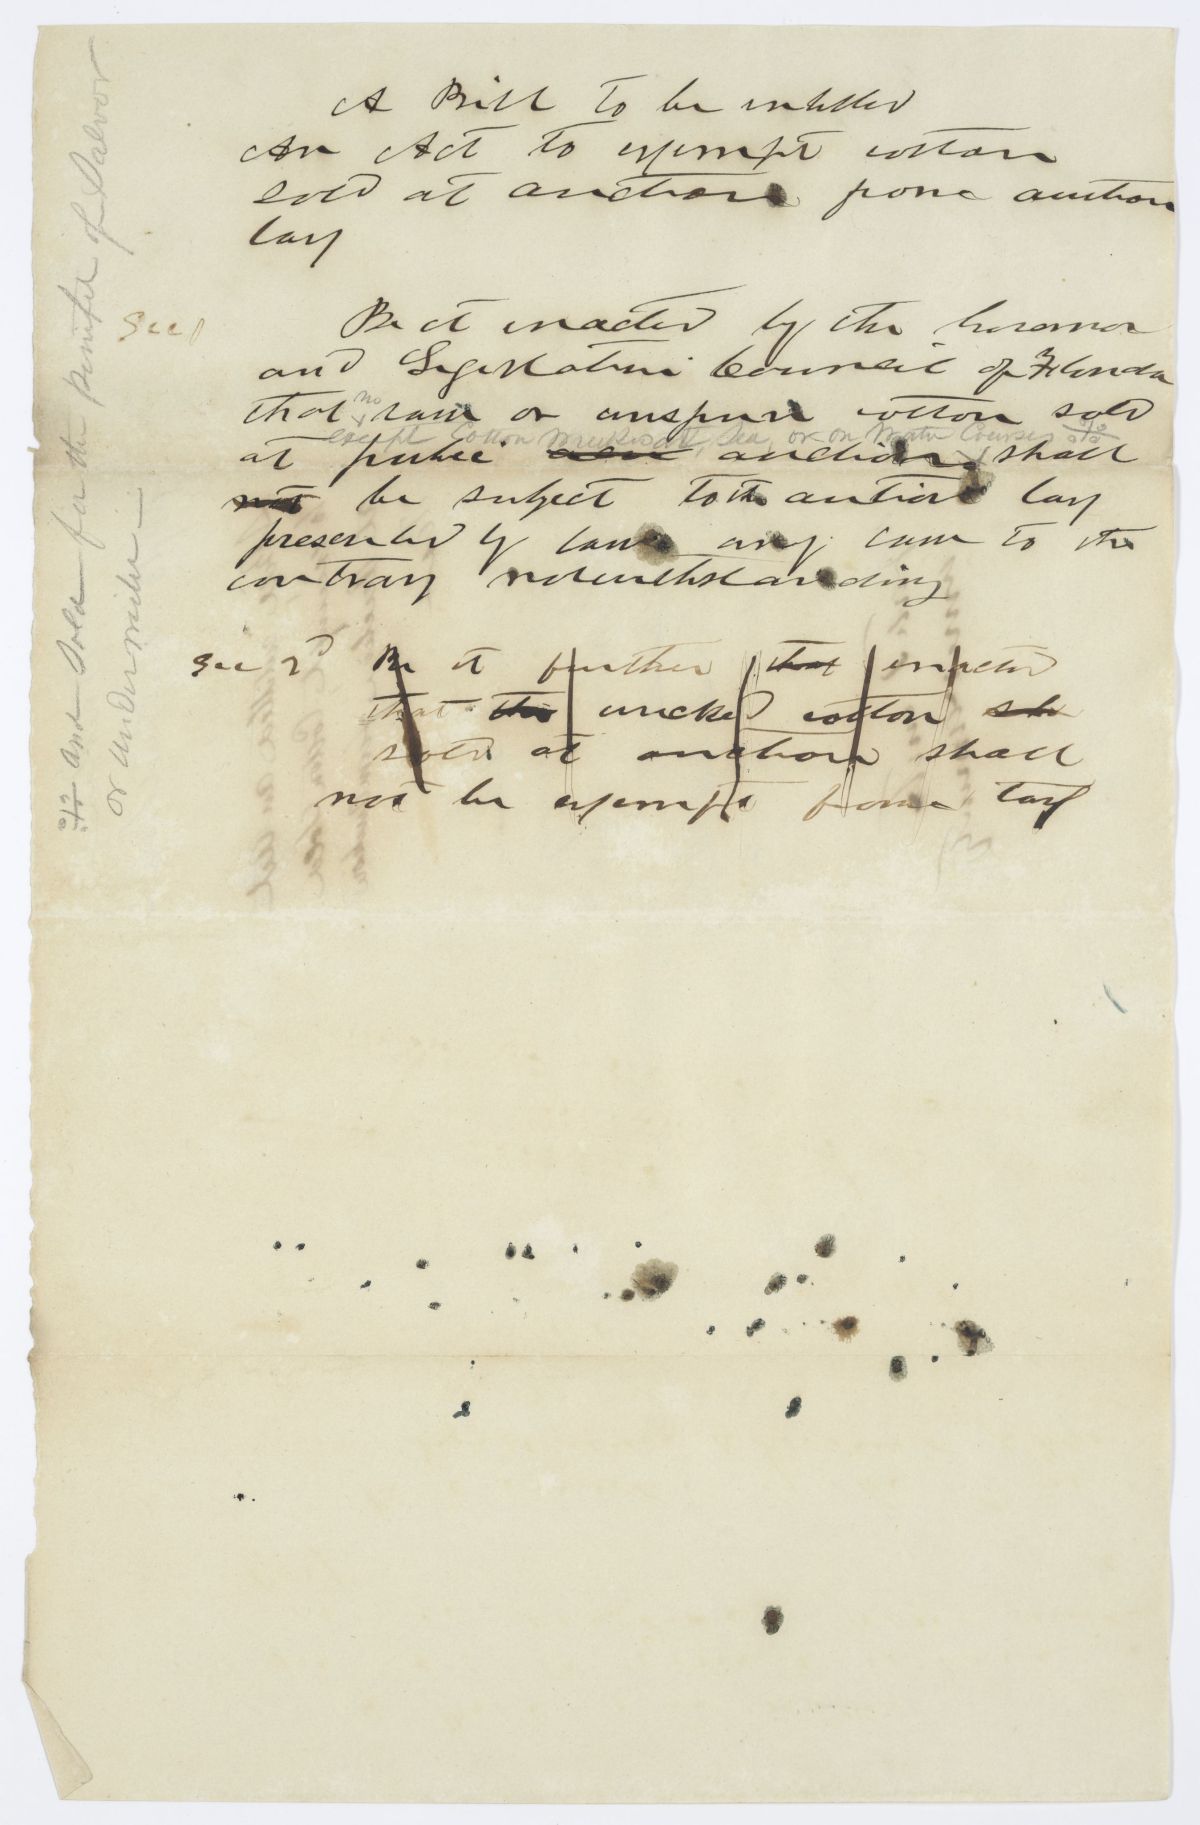 A Bill to be entitled
An Act to exempt cotton
sold at auction from auction
tax
Sec 1 Be it enacted by the Governor
and Legislative Council of Florida
that no raw or cotton sold
except Cotton Wrecked at Sea, or on Water Courses
at public auction shall
not be subject to the auction tax
by law any law to the
contrary notwithstanding
Sec 2d Be it further that enacted
that the wrecked cotton sh
sold at auction shall
not be exempt from tax
and Sold for the benefit of Salvor
or Underwriter